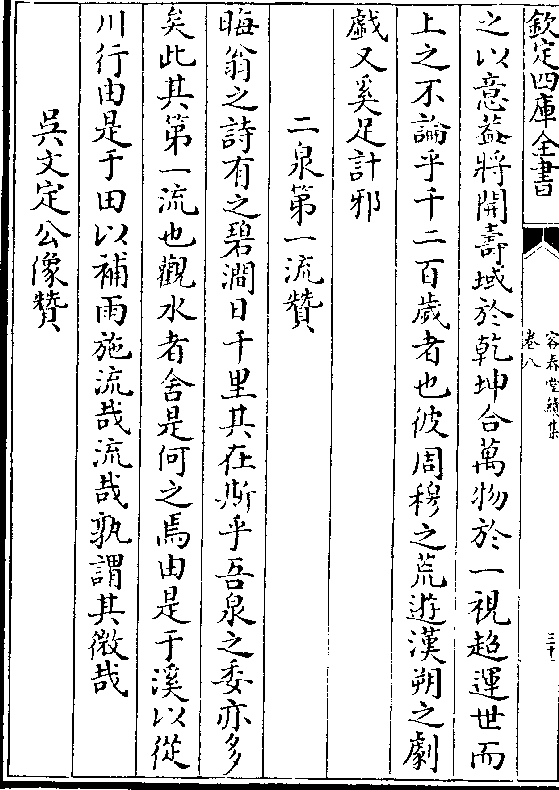 欽定四庫全書
容春堂續集
卷八
三十一
之以意蓋將開壽域於乾坤合萬物於一視超運世而
上之不論乎千二百歲者也彼周穆之荒遊漢朔之劇
戲又奚足計邪
二泉第一流贊
晦翁之詩有之碧澗日千里其在斯乎吾泉之委亦多
矣此其第一流也觀水者舍是何之焉由是于溪以從
川行由是于田以補雨施流哉流哉孰謂其微哉
吳文定公像贊